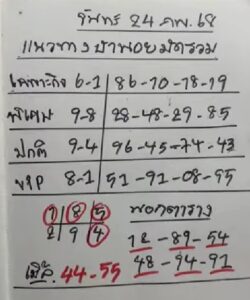 จันทร์ 24 กพ. 68
แนวทางฮานอยมัดรวม
เฉพาะกิจ 6-1 86-10-18-19
พิเศษ 9-8 28-48-29-85
ปกติ 9-4 96-45-74-43
VIP 8-1 51-91-08-95
1 8 5 พอกตาราง
2 9 4 12-89-54
เบิ้ล 44-55 48-94-91